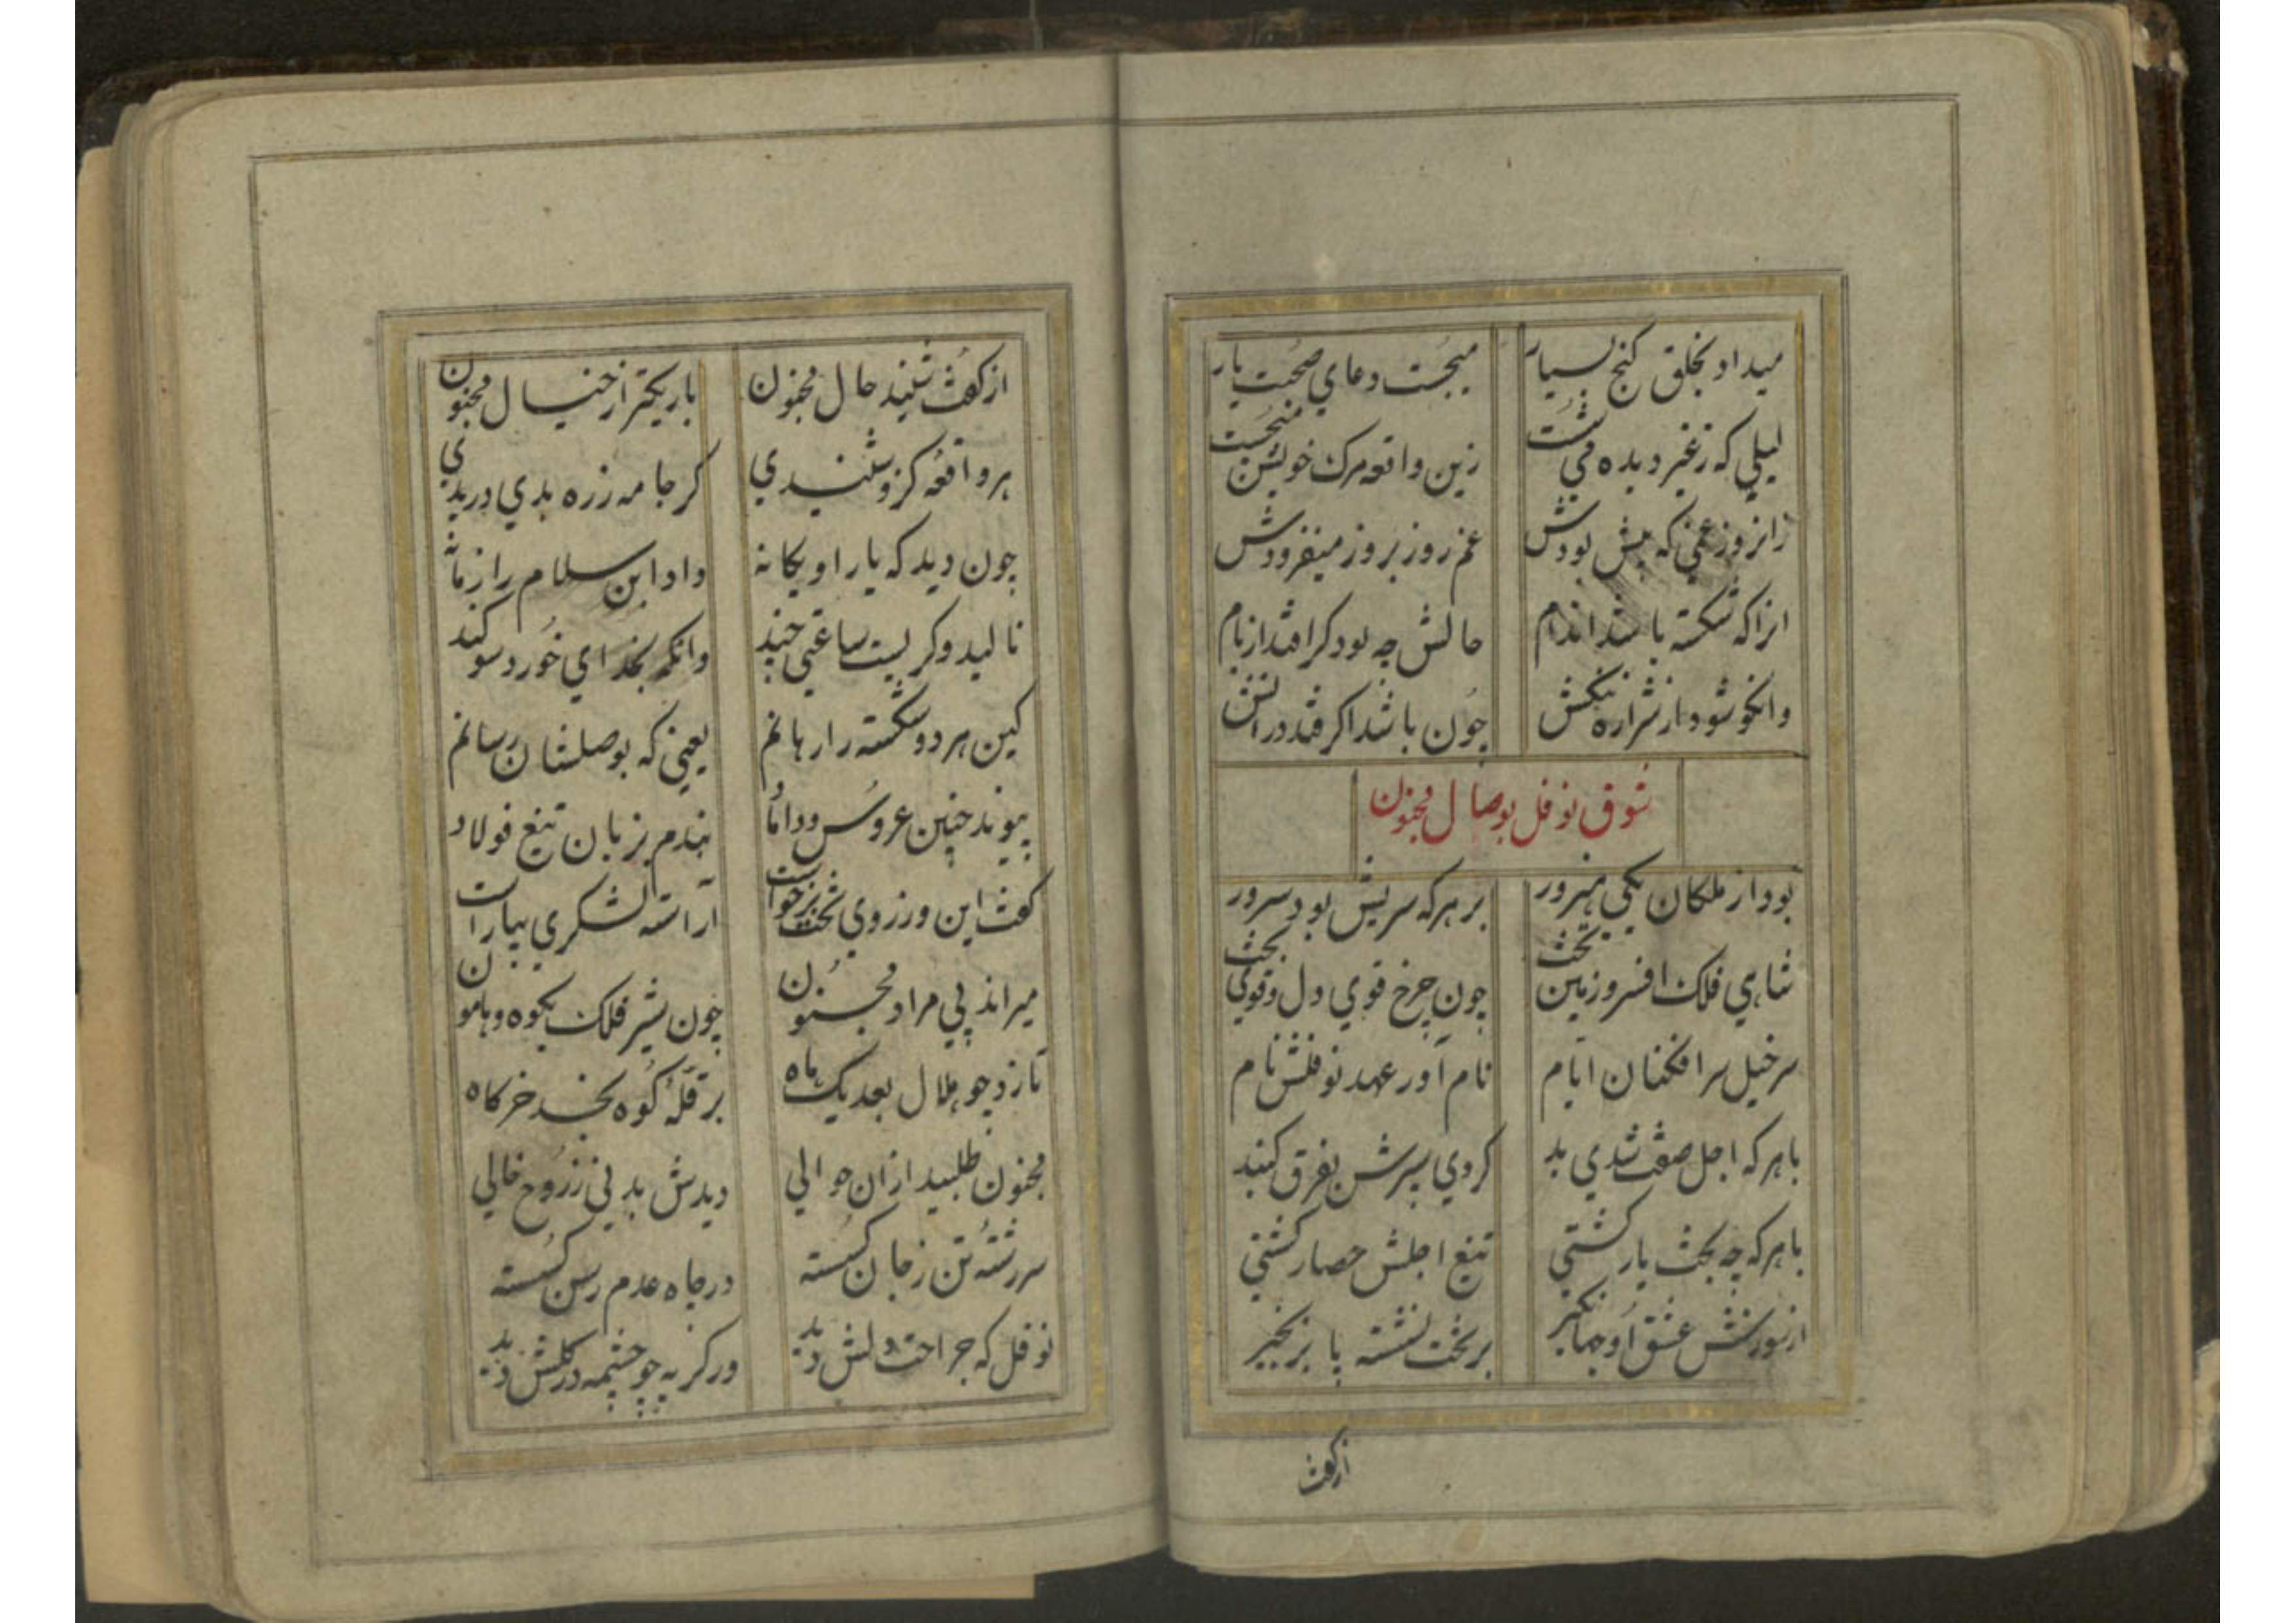 میداد بخلق کنج بسیار میجست دعای صحبت یار
لیلی که زغیر دیده می شست زین واقعه مرک خویش میجست
زانروز غمی که بیش بودش غم روز بروز میفزودش
انرا که شکسته باشد اندام حالش چه بود کر افتد از بام
وانکو شود از شراره نکش چون باشد اکر فتد در اتش
شوق نوفل بوصال مجنون
بود از ملکان یکی هنرور بر هر که سریش بود سرور
شاهی فلک افسر و زمین تخت چون چرخ قوی دل و قوی بخت
سرخیل سرافکنان ایام نام آور عهد نوفلش نام
با هر که اجل صفت شدی بد کردی سپرش بفرق کنبد
با هر که چه بخت یار کشتی تیغ اجلش حصار کشتی
از شورش عشق او جهانکیر بر تخت نشسته پا بزنجیر
ازکفت
ازکفت شنید حال مجنون باریکتر از خیال مجنون
هر واقعه کزو شنیدی کر جامه زره بدی دریدی
چون دید که یار او یکانه داد ابن سلام را زمانه
نالید و کریست ساعتی چند وانکه بخدای خورد سوکند
کین هر دو شکسته را رهانم یعنی که بوصلشان رسانم
پیوند چنین عروس و داماد بندم بزبان تیغ فولاد
کفت این و ز روی تخت برخواست آراسته لشکری بیاراست
میراند پی مراد مجنون چون شیر فلک بکوه و هامون
تا زد چو هلال بعد یک ماه بر قله کوه نجد خرکاه
مجنون طلبید ازان حوالی دیدش بدنی ز روح خالی
سررشته تن ز جان کسسته در چاه عدم رسن کسسته
نوفل که جراحت دلش دید در کریه چو چشمه در کلش دید